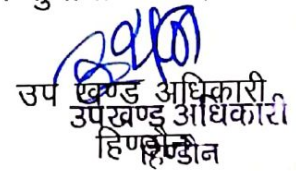 उप खण्ड अधिकारी
उपखण्ड अधिकारी
हिण्डौन
हिण्डौन